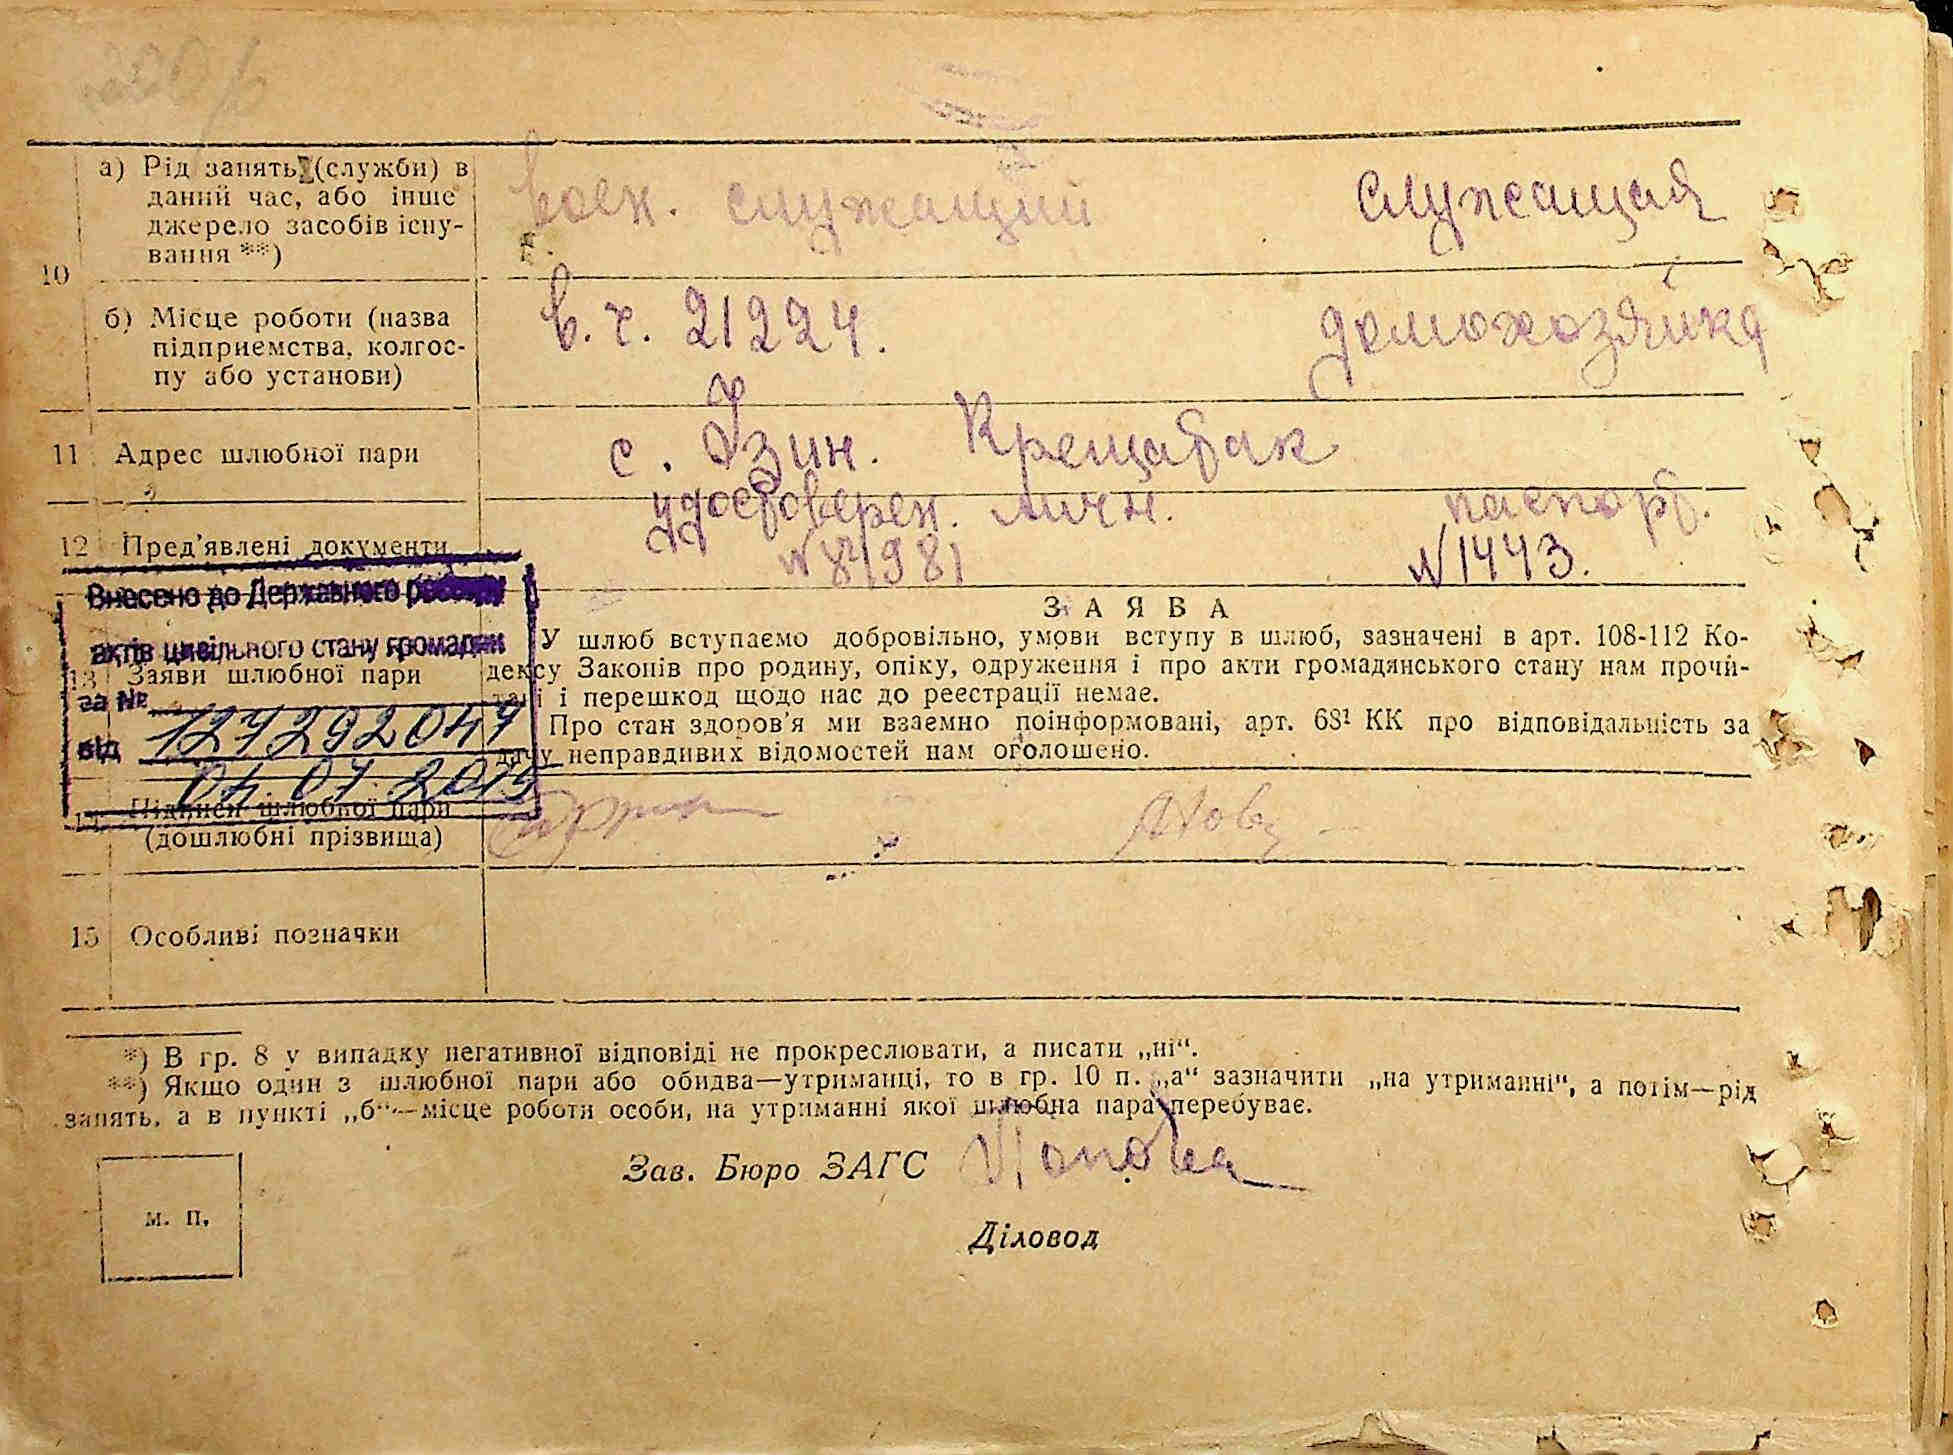 а) Рід занять (служби) в
даний час, або інше
джерело засобів існу-
вання **)
воен. служащий
служащая
10
б) Місце роботи (назва
підприємства, колгос-
пу або установи)
в. ч. 21224.
домохозяйка
11 Адрес шлюбної пари
с. Узин. Крещатак
12 Пред'явлені документи
удостоверен. личн.
паспорт.
N 1443.
Внесено до Державного реєстру
актів цивільного стану громадян
за № 127292047
від 04 07 2015
13 Заяви шлюбної пари
ЗАЯВА
У шлюб вступаємо добровільно, умови вступу в шлюб, зазначені в арт. 108-112 Ко-
дексу Законів про родину, опіку, одруження і про акти громадянського стану нам прочи-
тані і перешкод щодо нас до реєстрації немає.
Про стан здоров'я ми взаємно поінформовані, арт. 68¹ КК про відповідальність за
дачу неправдивих відомостей нам оголошено.
14 Підписи шлюбної пари
(дошлюбні прізвища)
15 Особливі позначки
*) В гр. 8 у випадку негативної відповіді не прокреслювати, а писати „ні“.
**) Якщо один з шлюбної пари або обидва—утриманці, то в гр. 10 п. „а“ зазначити „на утриманні“, а потім—рід
занять, а в пункті „б“—місце роботи особи, на утриманні якої шлюбна пара перебуває.
Зав. Бюро ЗАГС Попова
м. п.
Діловод